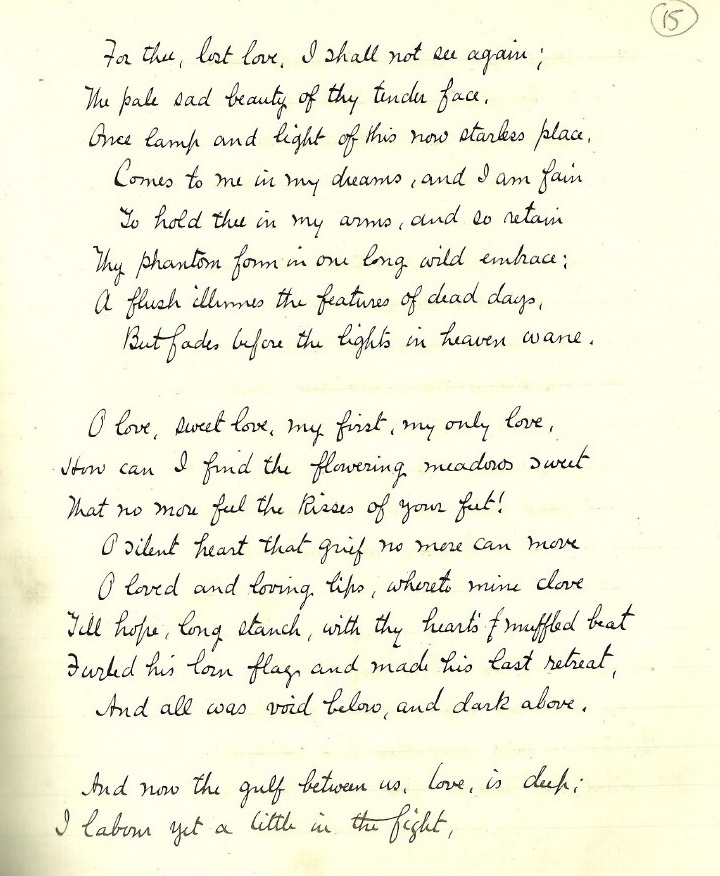 15
For thee, lost love, I shall not see again;
The pale sad beauty of thy tender face,
Once lamp and light of this now starless place,
Comes to me in my dreams, and I am fain
To hold thee in my arms, and so retain
Thy phantom form in one long wild embrace;
A flush illumes the features of dead days,
But fades before the lights in heaven wane.
O love, sweet love, my first, my only love,
How can I find the flowering meadows sweet
That no more feel the kisses of your feet!
O silent heart that grief no more can move
O loved and loving lips, whereto mine clove
Till hope, long stanch, with thy heart's muffled beat
Furled his lorn flag, and made his last retreat,
And all was void below, and dark above.
And now the gulf between us, love, is deep;
I labour yet a little in the fight,